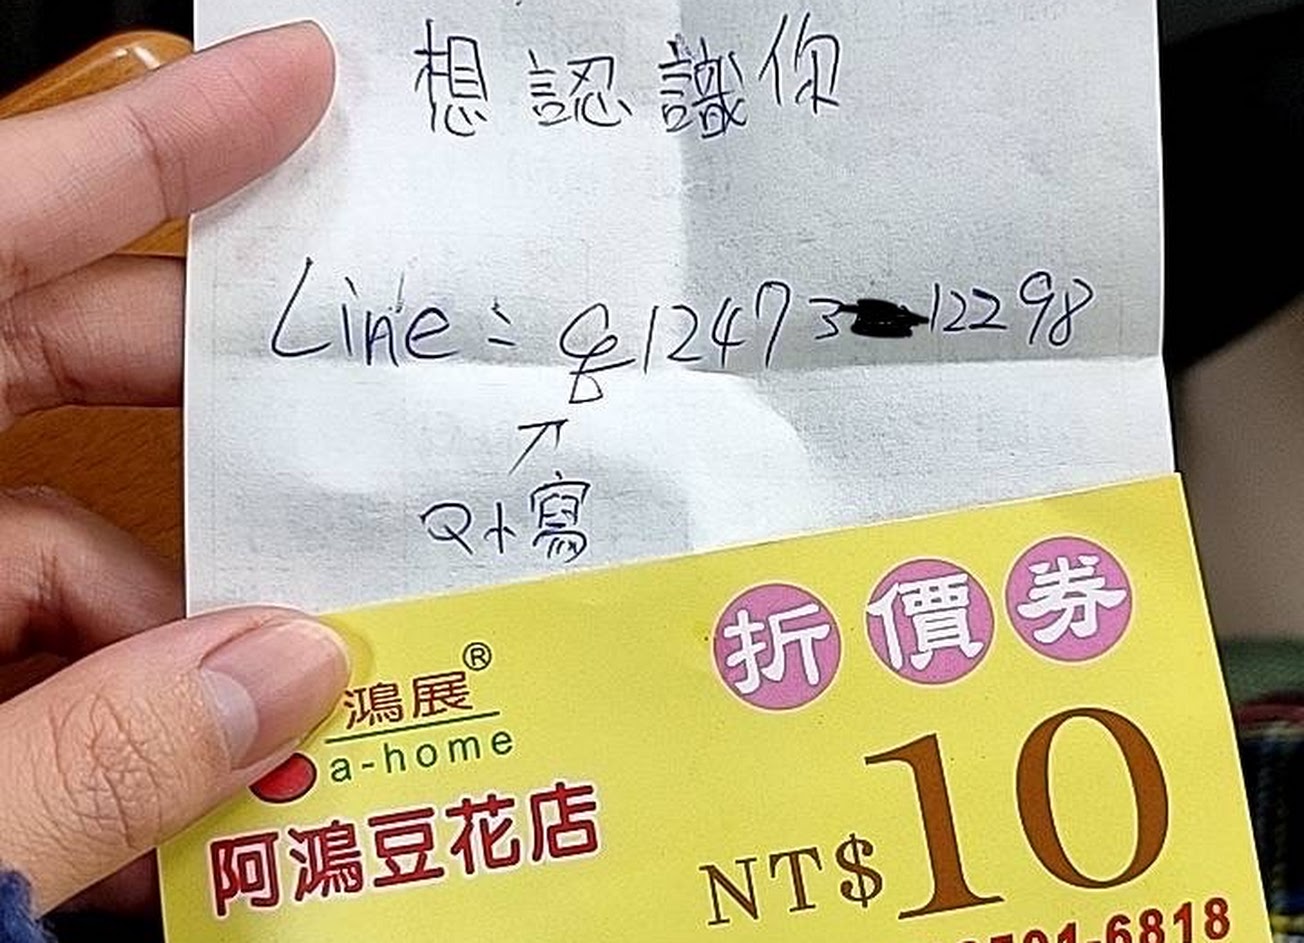 想認識你
Line: q124731​2298
↗
Q小寫
折價券
鴻展®
a-home
阿鴻豆花店
NT$10
501-6818